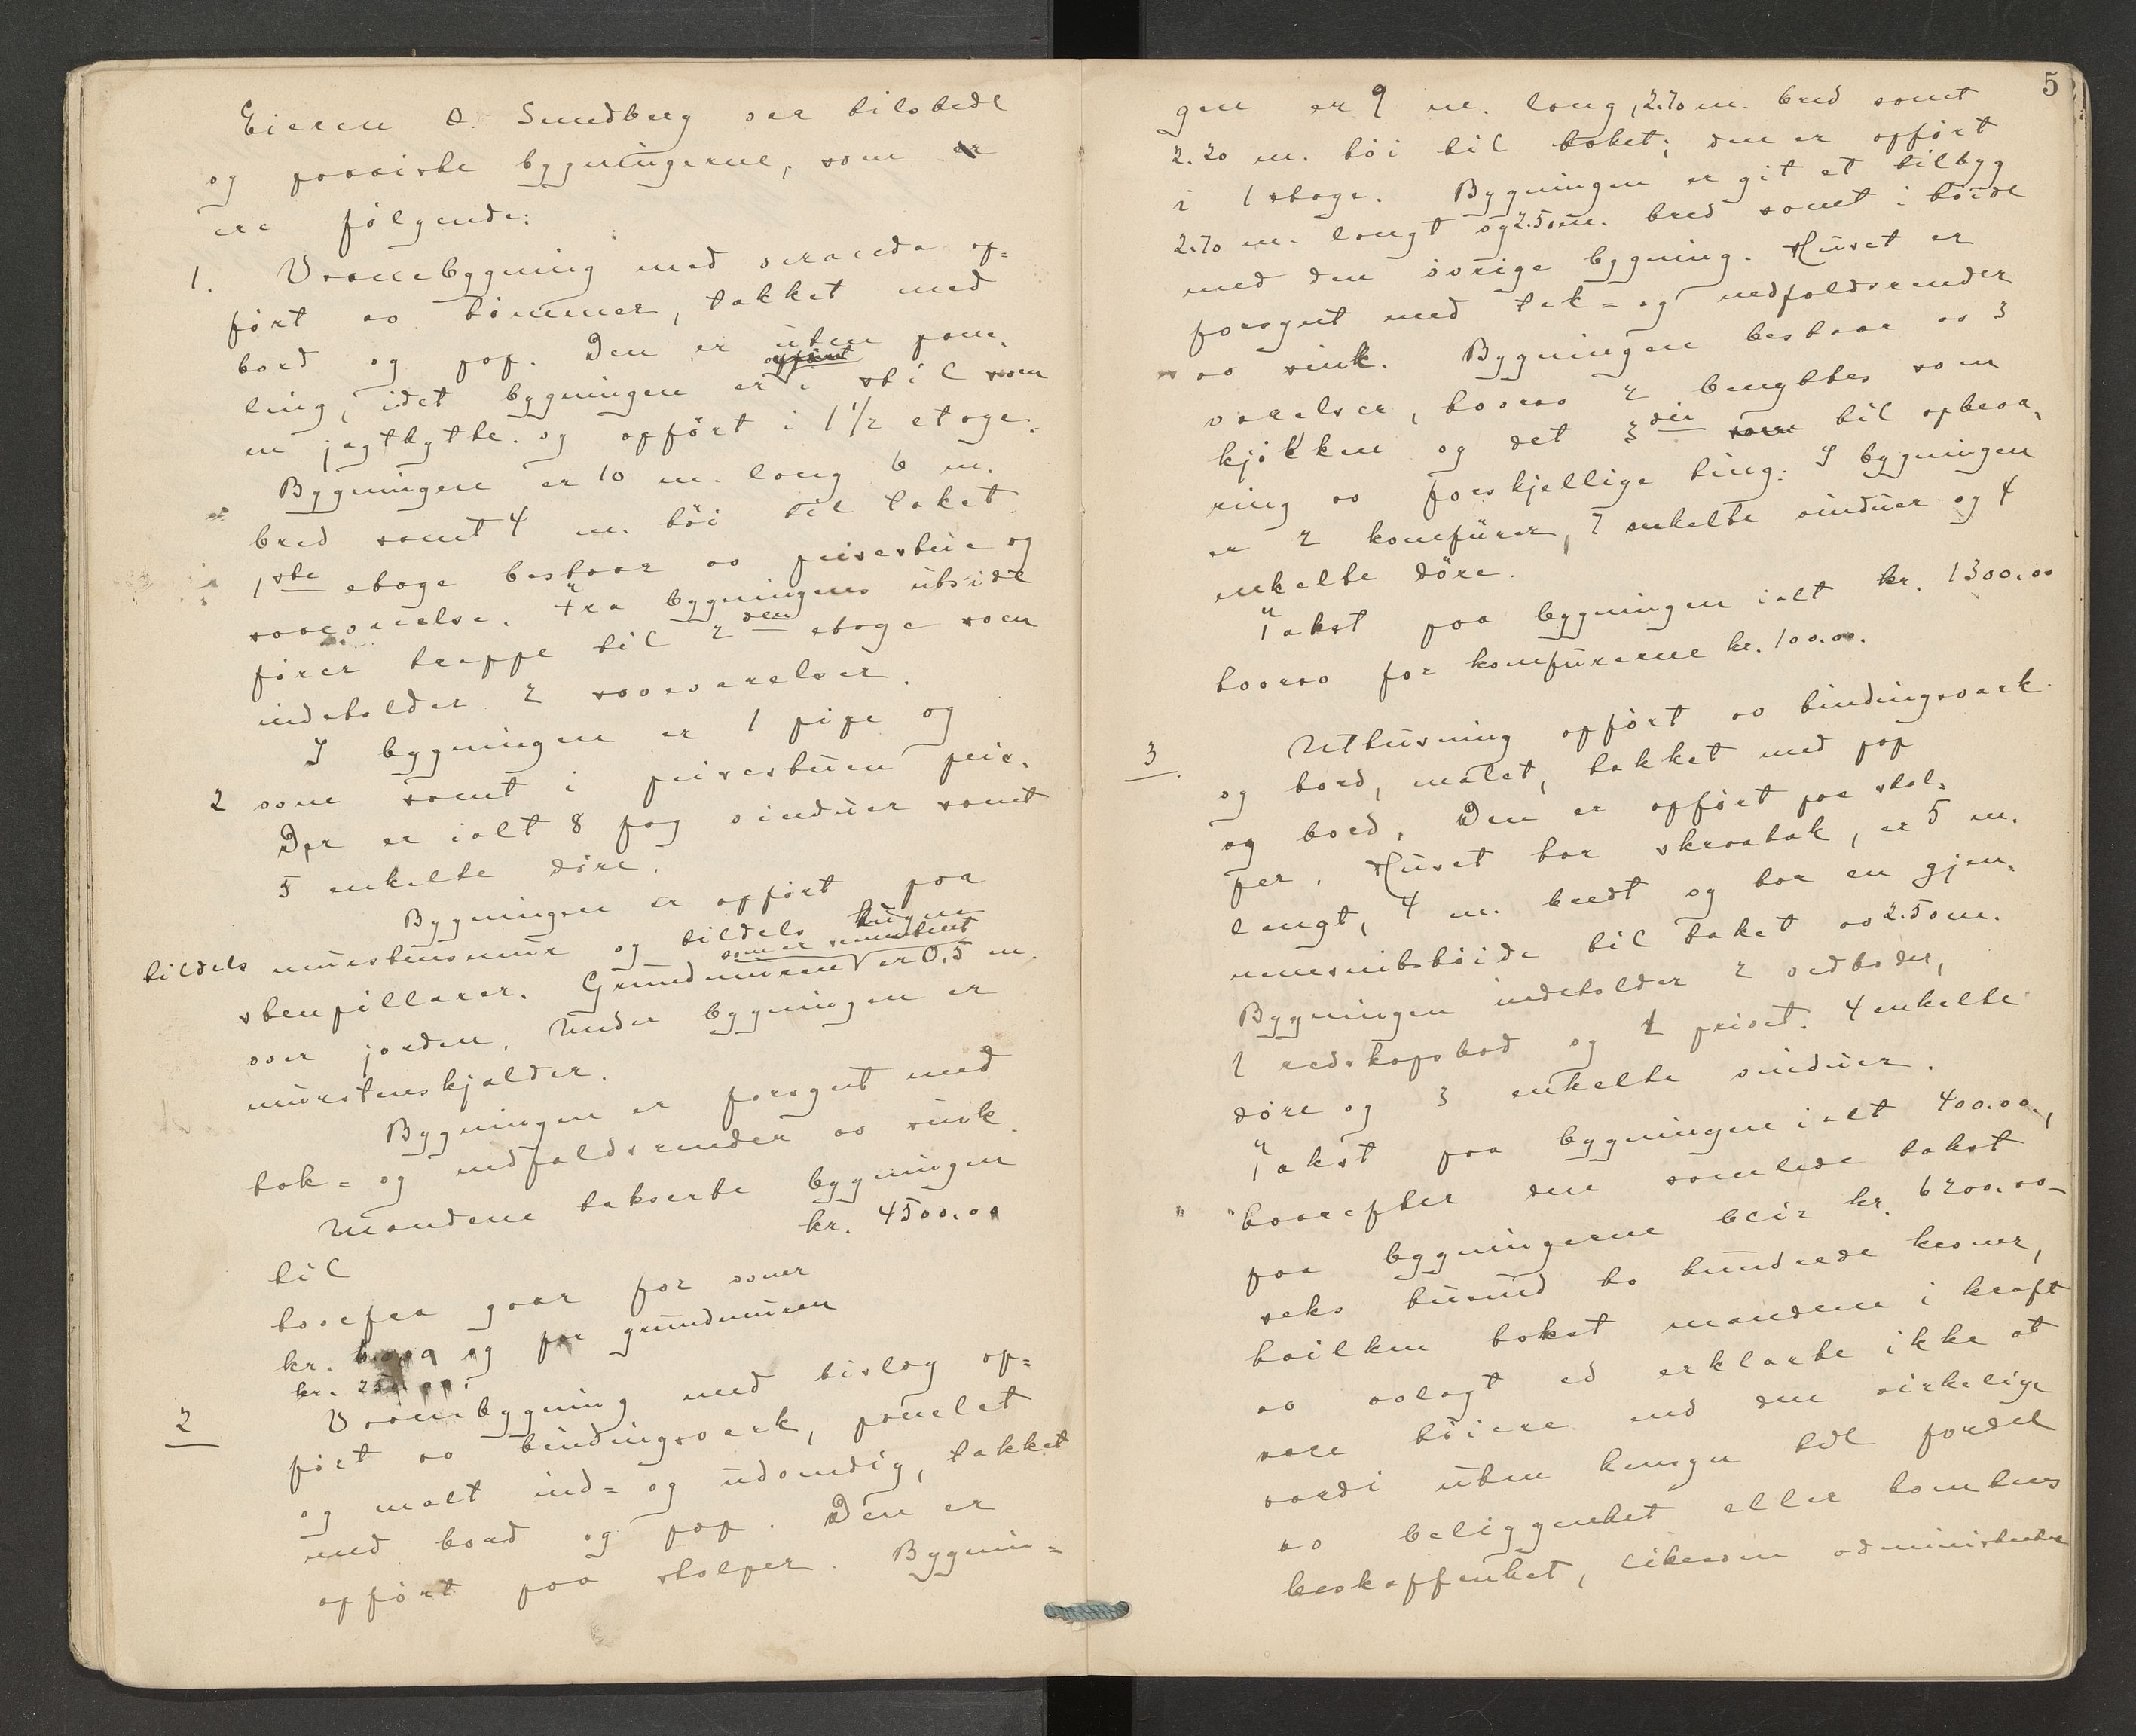 Eieren O. Sundberg var tilstede
og paaviste bygningerne, som er
ere følgende:
1. Vaanebygning med veranda op=
ført av tømmer, tækket med
bord og pap. Den er uten pane,
ling, idet bygningen er opført i stil som
en jagthytte. og opført i 1 1/2 etage.
Bygningen er 10 m. lang 6 m.
bred samt 4 m. høi til taket.
1ste etage bestaar av peisestue og
soveværelse. Fra bygningens utside
fører trappe til 2den etage som
indeholder 2 soveværelser.
I bygningen er 1 pipe og
2 ovne samt i peisestuen peis.
Der er ialt 8 fag vinduer samt
5 enkelte døre.
Bygningen er opført paa
tildels murstensmur og tildels
stenpillarer. Grundmuren som er cementert er 0.5 m.
over jorden. Under bygningen er
murstenskjælder.
Bygningen er forsynt med
tak= og nedfaldsrender av sink.
Mændene takserte bygningen
til kr. 4500.00
hvorfra gaar for ovner
kr. og for grundmuren
kr.
2 Vaanebygning med bislag op=
ført av bindingsverk, panelet
og malt ind= og udvendig, tækket
med bord og pap. Den er
opført paa stolper. Bygnin=
5
gen er 9 m. lang, 2.70 m. bred samt
2.20 m. høi til taket; den er opført
i 1 etage. Bygningen er git et tilbyg
2.70 m. langt og 2.50 m. bred samt i høide
med den øvrige bygning. Huset er
forsynt med tak= og nedfaldsrender
av sink. Bygningen bestaar av 3
værelser, hvorav 2 benyttes som
kjøkken og det 3die som til opbeva,
ring av forskjellige ting. I bygningen
er 2 komfürer, 7 enkelte vinduer og 4
enkelte døre.
Takst paa bygningen ialt kr. 1300.00
hvorav for komfürerne kr. 100.00.
3. Uthusning opført av bindingsverk
og bord, malet, tækket med pap
og bord. Den er opført paa stol=
per. Huset har skraatak, er 5 m.
langt, 4 m. bredt og har en gjen,
nemsnitshøide til taket av 2.50 m.
Bygningen indeholder 2 vedboder,
1 redskapsbod og 1 privet. 4 enkelte
døre og 3 enkelte vinduer.
Takst paa bygningen ialt 400.00.,
" " hvorefter den samlede takst
paa bygningerne blir kr. 6200.00-
seks tusind to hundrede kroner,
hvilken takst mændene i kraft
av avlagt ed erklærte ikke at
være høiere end den virkelige
værdi uten hensyn til fordel
av beliggenhet eller tomtens
beskaffenhet, likesom administrative